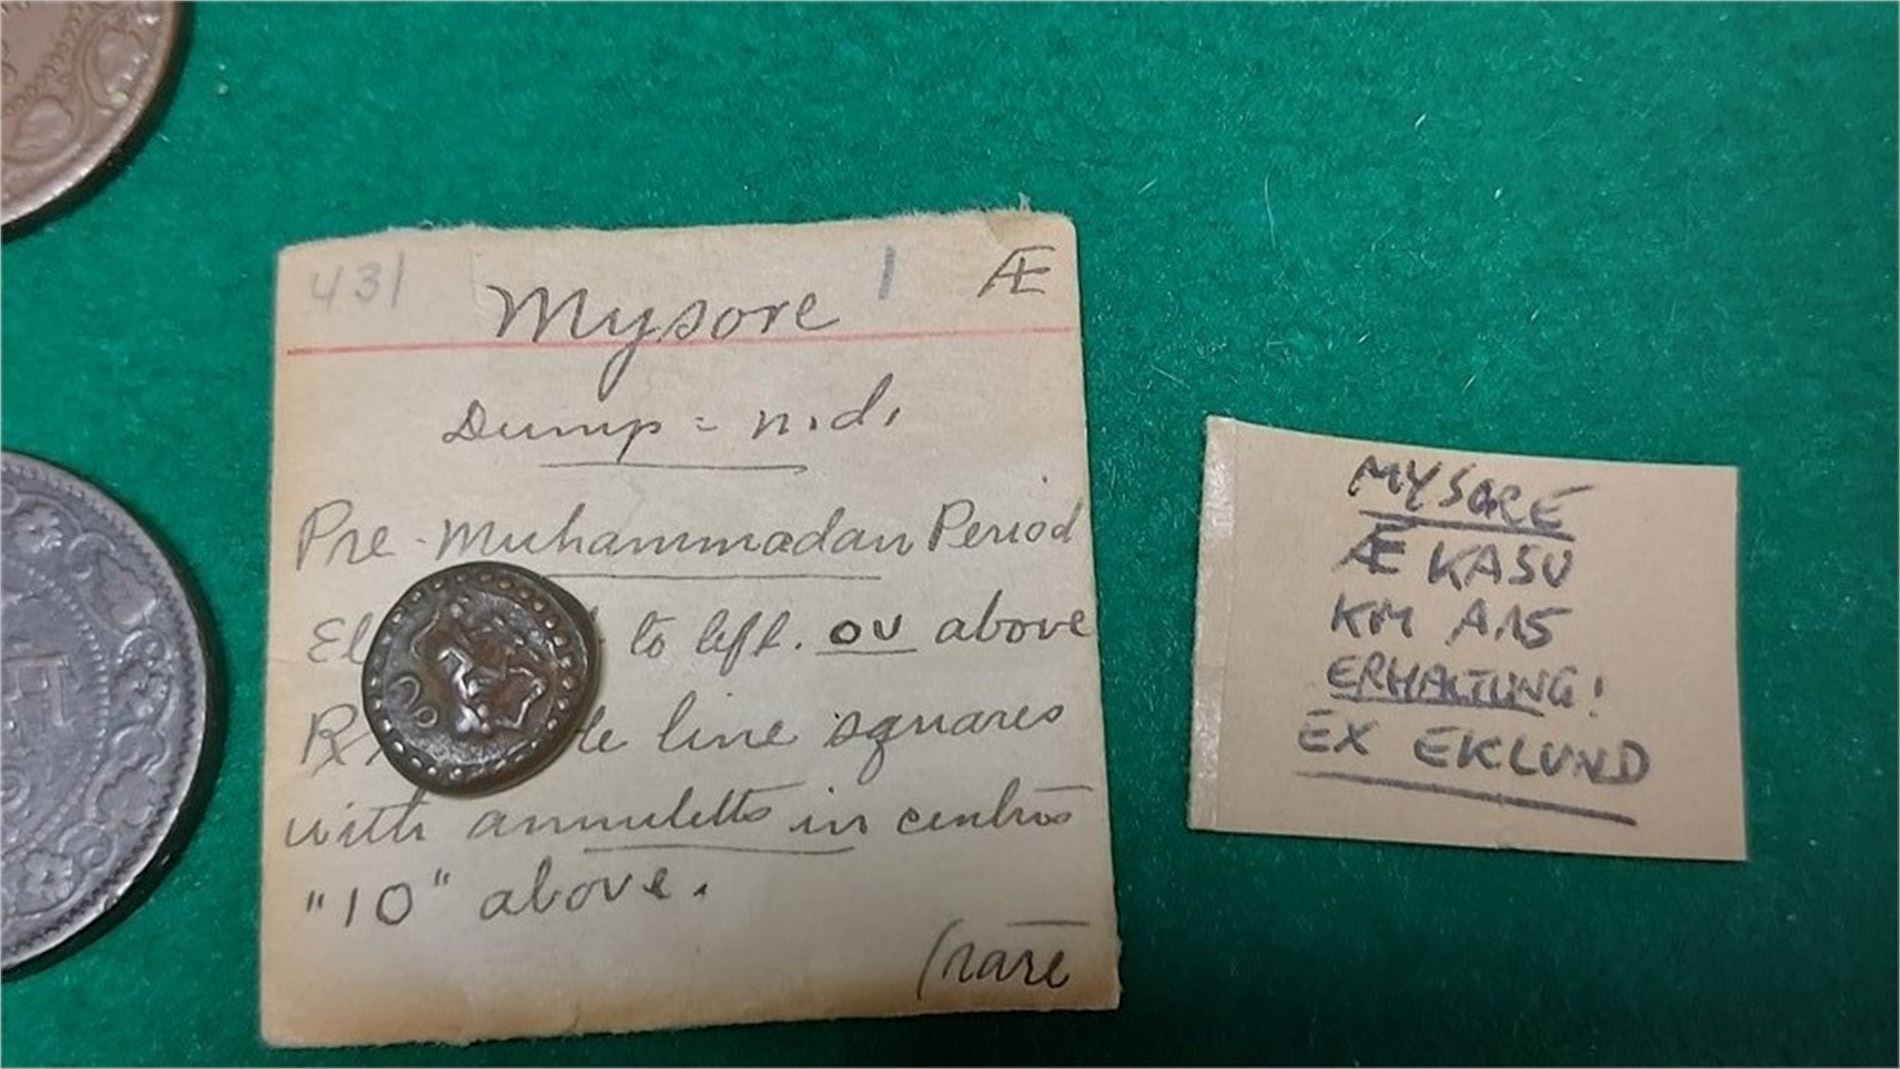 431 Mysore 1 Æ
Dump = n.d.
Pre-Muhammadan Period
El to left. OU above
line squares
with annuletts in centres
"10" above.
(rare
MYSORE
Æ KASU
KM A15
ERHALTUNG!
EX EKLUND